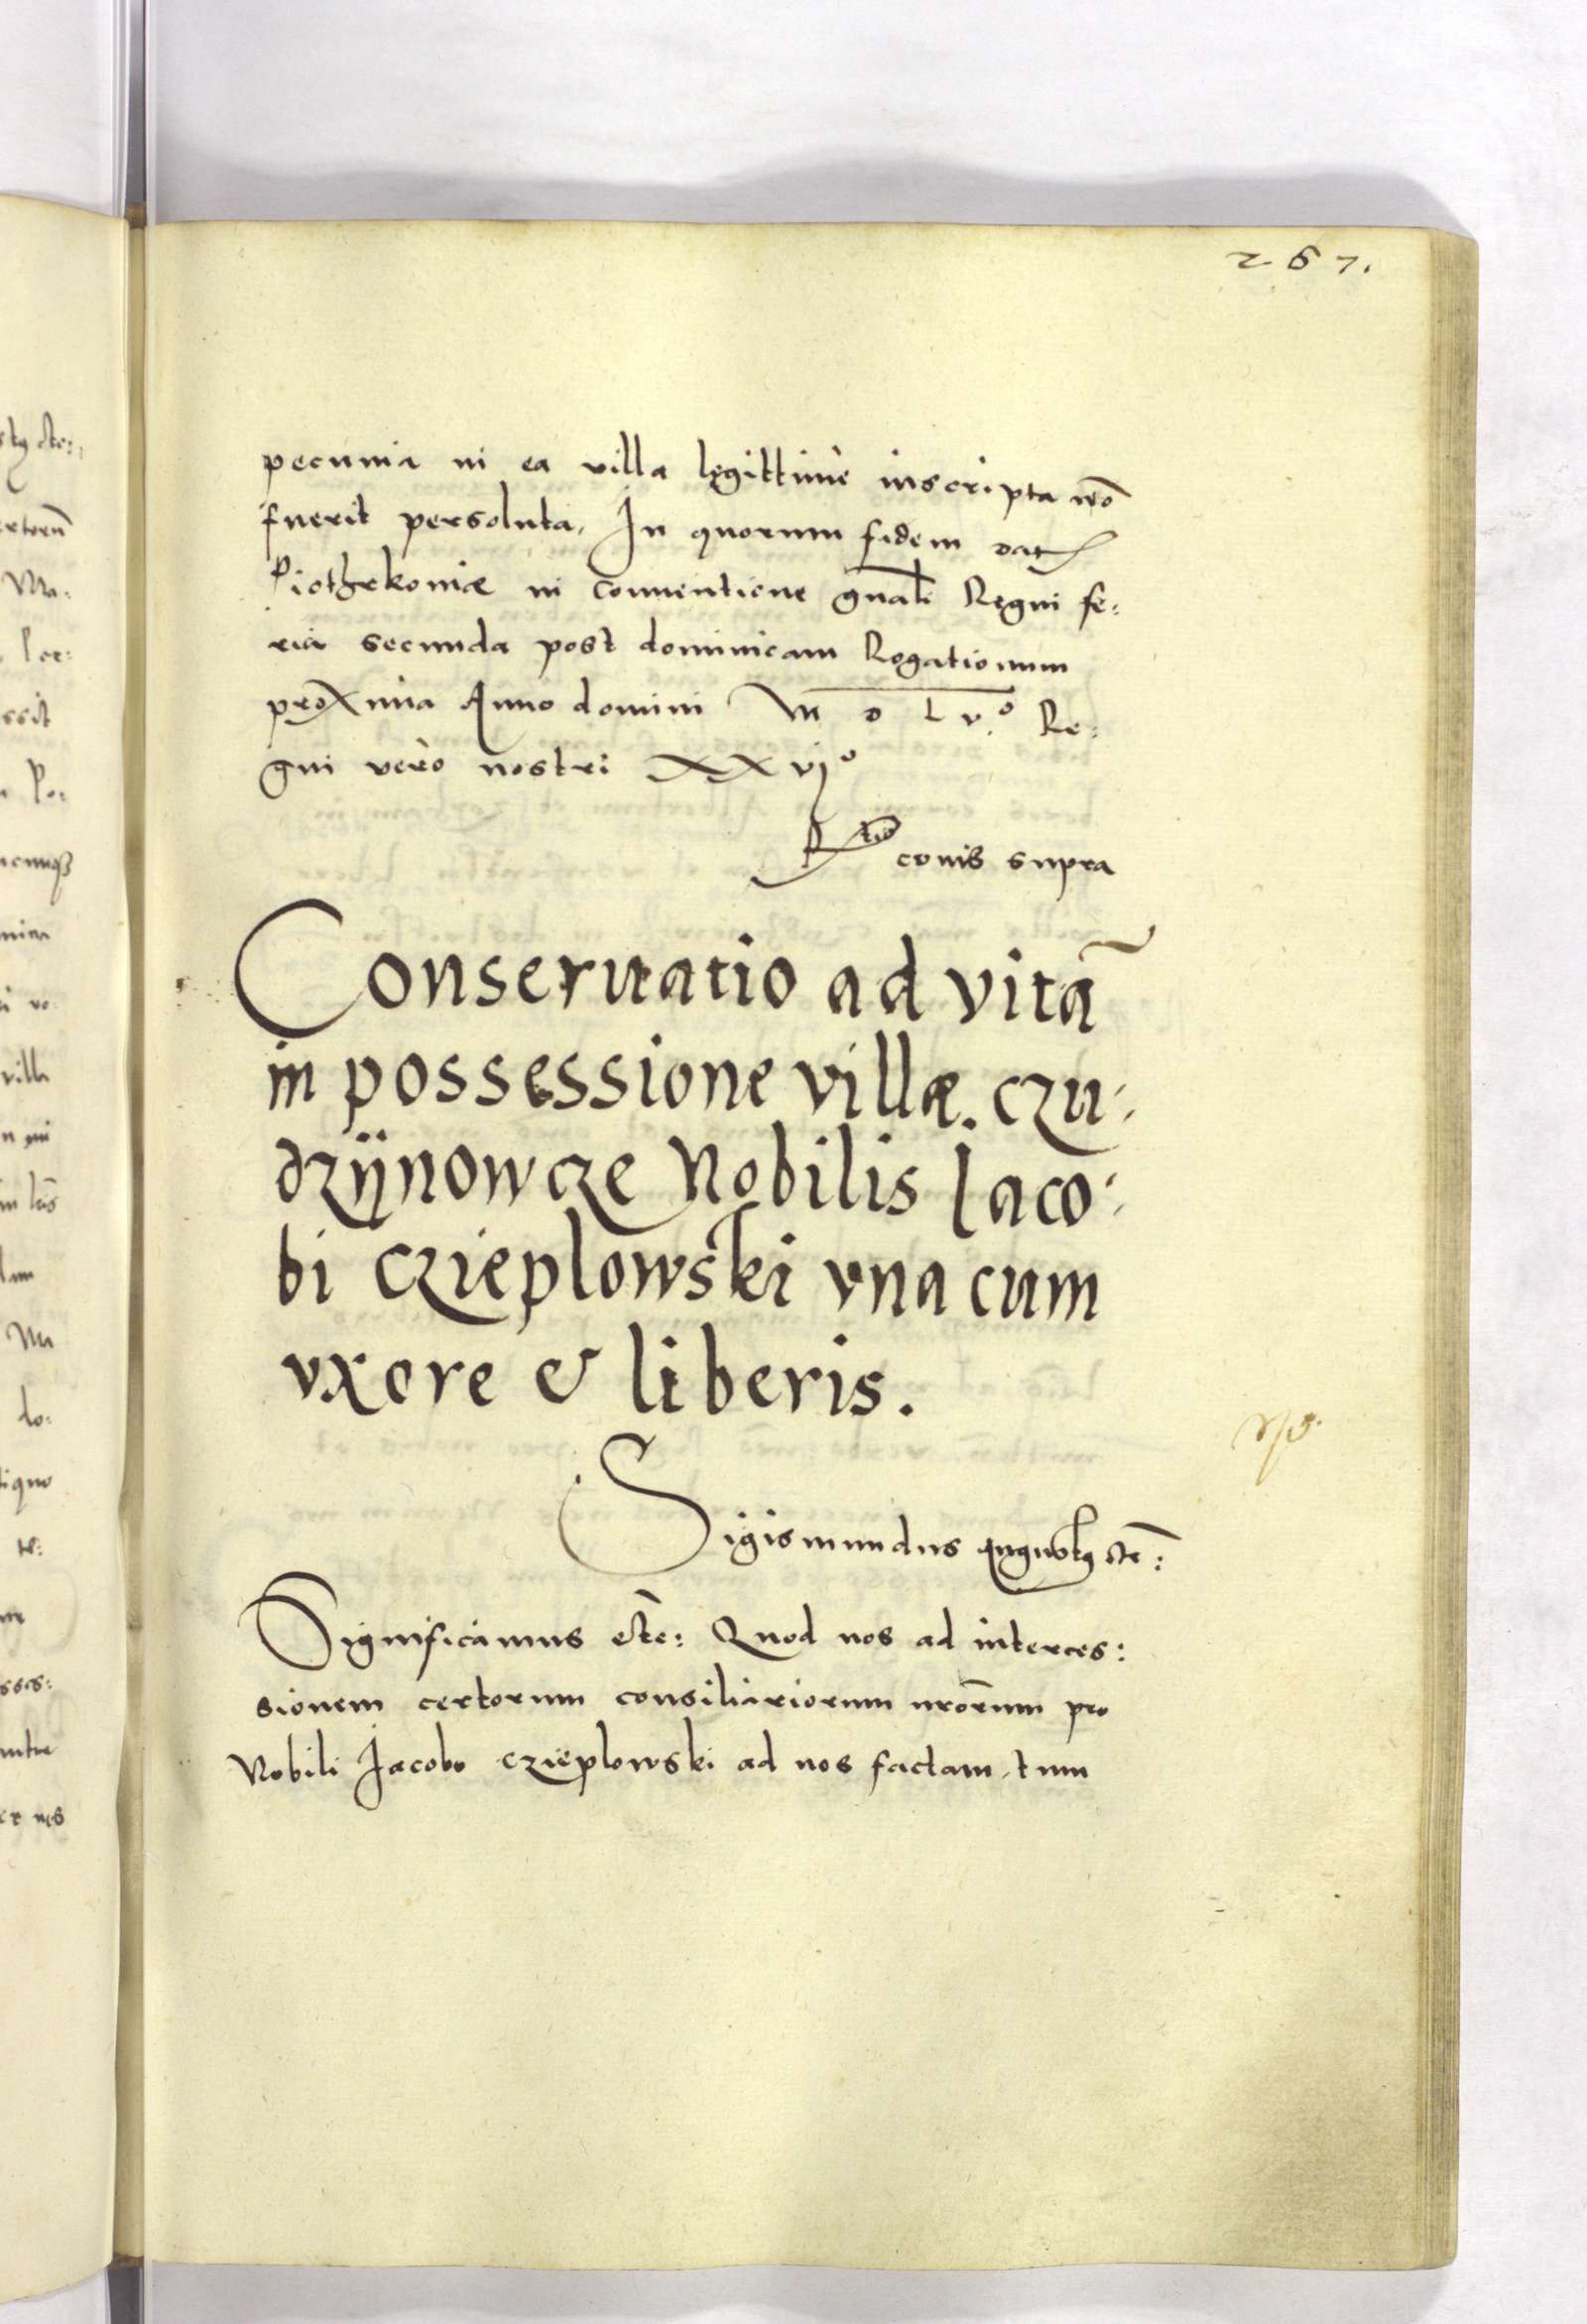 267.
pecunia in ea villa legittimè inscripta nō
fuerit persoluta, In quorum fidem dat
Piothrkoviæ in conventione gnāli Regni fe:
ria secunda post dominicam Rogationum
proxima Anno domini M D L v.º Re:
gni verò nostri XXvjº
R^tio co̅nis supra
Conseruatio ad vitā
in possessione villæ. czu:
drÿnowcze Nobilis Iaco:
bi Czieplowski vna cum
vxore & liberis.
Sigismundus Augustus etc̄:
Significamus etc̄: Quod nos ad interces:
sionem certorum consiliariorum nrōrum pro
Nobili Jacobo Czieplowski ad nos factam, tum